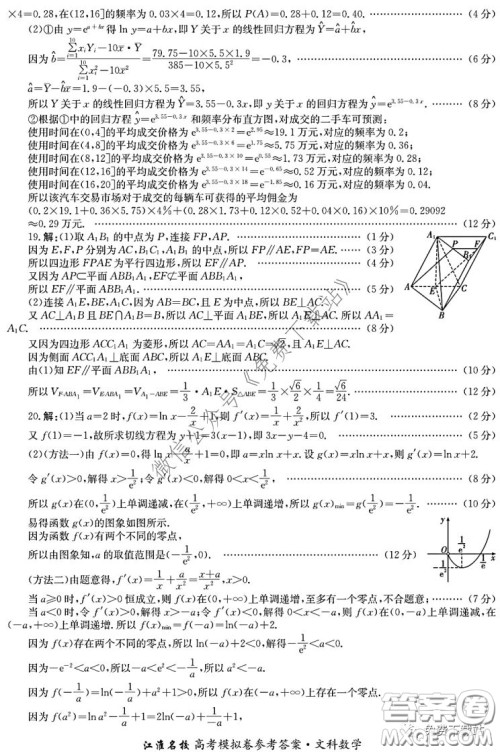 ×4=0.28,在(12,16]的频率为 0.03×4=0.12,所以 P(A)=0.28+0.12=0.40. (4分)
(2)①由 y=e^{a+bx} 得 ln y=a+bx,即 Y 关于 x 的线性回归方程为 Ŷ=â+b̂x,
因为 b̂=(∑_{i=1}^{10} x_iY_i−10x̄·Ȳ)/(∑_{i=1}^{10} x_i²−10x̄²)=(79.75−10×5.5×1.9)/(385−10×5.5²)=−0.3, (6分)
â=Ȳ−b̂x̄=1.9−(−0.3)×5.5=3.55,
所以 Y 关于 x 的线性回归方程为 Ŷ=3.55−0.3x,即 y 关于 x 的回归方程为 ŷ=e^{3.55−0.3x}. (8分)
②根据①中的回归方程 ŷ=e^{3.55−0.3x} 和频率分布直方图,对成交的二手车可预测:
使用时间在(0,4]的平均成交价格为 e^{3.55−0.3×2}=e^{2.95}≈19.1 万元,对应的频率为 0.2;
使用时间在(4,8]的平均成交价格为 e^{3.55−0.3×6}=e^{1.75}≈5.75 万元,对应的频率为 0.36;
使用时间在(8,12]的平均成交价格为 e^{3.55−0.3×10}=e^{0.55}≈1.73 万元,对应的频率为 0.28;
使用时间在(12,16]的平均成交价格为 e^{3.55−0.3×14}=e^{−0.65}≈0.52 万元,对应的频率为 0.12;
使用时间在(16,20]的平均成交价格为 e^{3.55−0.3×18}=e^{−1.85}≈0.16 万元,对应的频率为 0.04.
所以该汽车交易市场对于成交的每辆车可获得的平均佣金为
(0.2×19.1+0.36×5.75)×4%+(0.28×1.73+0.12×0.52+0.04×0.16)×10%=0.29092
≈0.29 万元. (12分)
19.解:(1)取 A₁B₁ 的中点为 P,连接 FP,AP. (1分)
因为 E,F,P 分别为 AC,B₁C₁,A₁B₁ 的中点,所以 FP∥AE,FP=AE. (3分)
所以四边形 FPAE 为平行四边形,所以 EF∥AP. (4分)
又因为 AP⊂平面 ABB₁A₁,EF⊄平面 ABB₁A₁,
所以 EF∥平面 ABB₁A₁. (5分)
(2)连接 A₁E,BE,A₁C,因为 AB=BC,且 E 为中点,所以 BE⊥AC.
又 AC⊥A₁B 且 BE∩A₁B=B,所以 AC⊥平面 A₁BE,所以 AC⊥A₁E. 所以 AA₁=
A₁C. (8分)
又因为四边形 ACC₁A₁ 为菱形,所以 AC=AA₁=A₁C=√2,且 A₁E⊥AC.
因为侧面 ACC₁A₁⊥底面 ABC,所以 A₁E⊥底面 ABC.
由(1)知 EF∥平面 ABB₁A₁,
所以 V_{F-ABA₁}=V_{E-ABA₁}=V_{A₁-ABE}=1/3·A₁E·S_{△ABE}=1/3×√6/2×1/4=√6/24. (12分)
20.解:(1)当 a=2 时,f(x)=ln x−2/x+1,则 f′(x)=1/x+2/x²,所以 f′(1)=3. (2分)
又 f(1)=−1,故所求切线方程为 y+1=3(x−1),即 3x−y−4=0. (5分)
(2)(方法一)由 f(x)=0,得 ln x−a/x+1=0,即 a=xln x+x. 设 g(x)=xln x+x,则 g′(x)=ln x+2.
令 g′(x)>0,解得 x>1/e²;令 g′(x)<0,解得 0<x<1/e². (8分)
所以 g(x)在(0,1/e²)上单调递减,在(1/e²,+∞)上单调递增,所以 g(x)min=g(1/e²)=−1/e². (10分)
易得函数 g(x)的图象如图所示.
因为函数 f(x)有两个不同的零点,
所以由图象知,a 的取值范围是(−1/e²,0). (12分)
(方法二)由题意得,f′(x)=1/x+a/x²=(x+a)/x²,x>0.
当 a≥0 时,f′(x)>0 恒成立,则 f(x)在(0,+∞)上单调递增,至多有一个零点,不合题意; (7分)
当 a<0 时,令 f′(x)>0,解得 x>−a;令 f′(x)<0,解得 0<x<−a,则 f(x)在(0,−a)上单调递减,在
(−a,+∞)上单调递增. 所以 f(x)min=f(−a)=ln(−a)+2.
因为 f(x)存在两个不同的零点,所以 ln(−a)+2<0,解得−1/e²<a<0.
因为−e⁻²<a<0,所以−1/a>e²>−a.
因为 f(−1/a)=ln(−1/a)+a²+1>0,所以 f(x)在(−a,+∞)上存在一个零点.
因为 f(a²)=ln a²−1/a+1=2ln(−a)−1/a+1,
江淮名校 高考模拟卷参考答案·文科数学